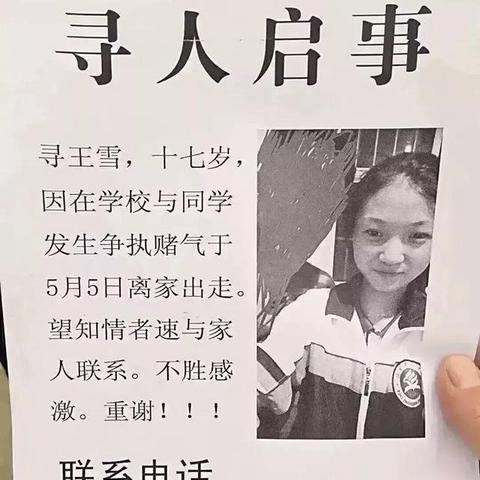 寻人启事
寻王雪，十七岁，
因在学校与同学
发生争执赌气于
5月5日离家出走。
望知情者速与家
人联系。不胜感
激。重谢！！！
联系电话